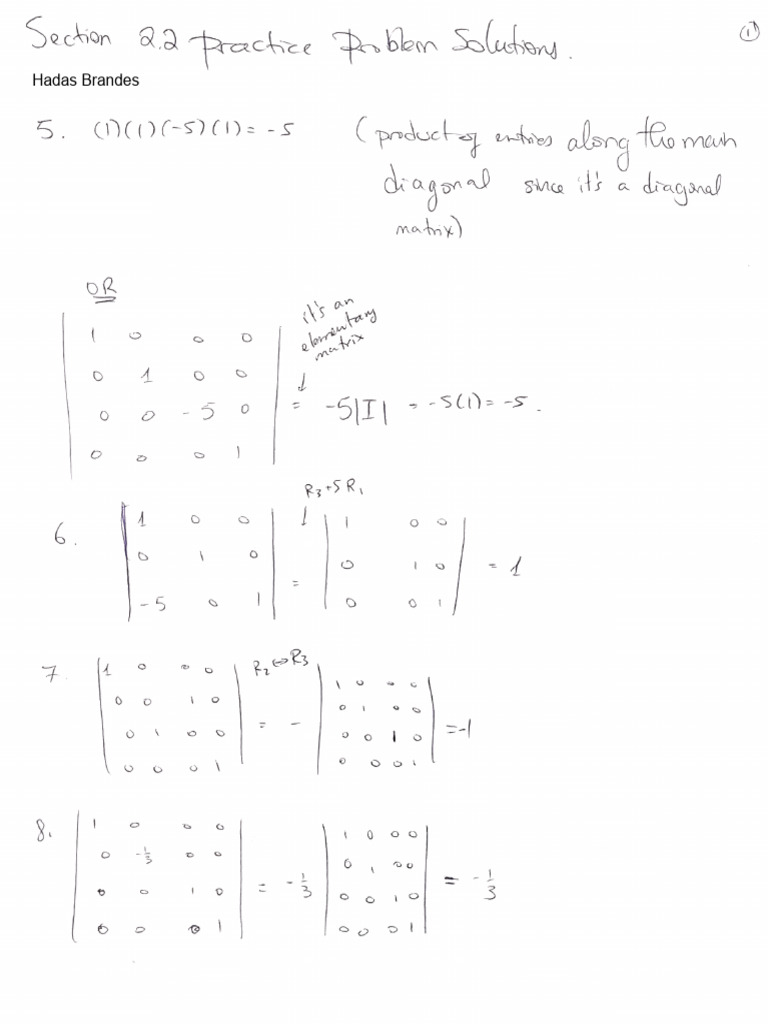 Section 2.2 Practice Problem Solutions.
①
Hadas Brandes
5. (1)(1)(-5)(1) = -5 (product of entries along the main
diagonal since it's a diagonal
matrix)
OR
it's an
elementary
matrix
↓
| 1 0 0 0 |
| 0 1 0 0 |
| 0 0 -5 0 | = -5|I| = -5(1) = -5.
| 0 0 0 1 |
R₃+5R₁
↓
6. | 1 0 0 | | 1 0 0 |
| 0 1 0 | = | 0 1 0 | = 1
| -5 0 1 | | 0 0 1 |
R₂↔R₃
7. | 1 0 0 0 | | 1 0 0 0 |
| 0 0 1 0 | | 0 1 0 0 |
| 0 1 0 0 | = - | 0 0 1 0 | = -1
| 0 0 0 1 | | 0 0 0 1 |
8. | 1 0 0 0 | | 1 0 0 0 |
| 0 -1/3 0 0 | | 0 1 0 0 |
| 0 0 1 0 | = -1/3 | 0 0 1 0 | = -1/3
| 0 0 0 1 | | 0 0 0 1 |